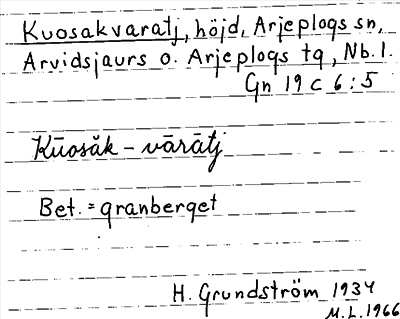 Kuosakvaratj, höjd, Arjeplogs sn,
Arvidsjaurs o. Arjeplogs tg, Nb. l.
Gn 19 c 6 : 5
Kūosăk - vārātj
Bet. = granberget
H. Grundström 1934
M.L. 1966